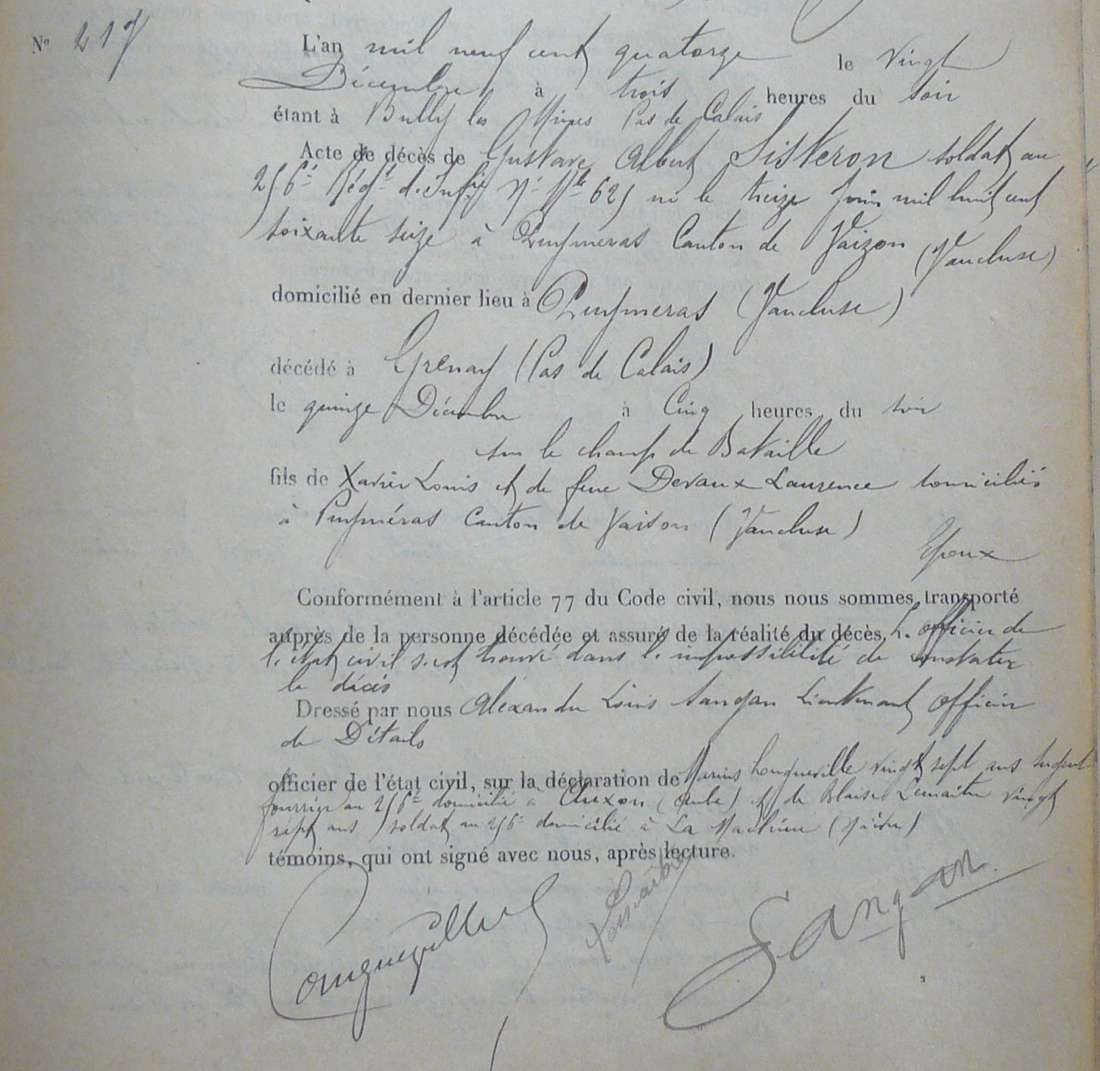 N° 217
L'an mil neuf cent quatorze le vingt
Décembre à trois heures du soir
étant à Bully les Mines Pas de Calais
Acte de décès de Gustave Albert Sisteron soldat au
256e Régt d'Infie No Mle 625 né le treize juin mil huit cent
soixante seize à Puyméras Canton de Vaizon (Vaucluse)
domicilié en dernier lieu à Puymeras (Vaucluse)
décédé à Grenay (Pas de Calais)
le quinze Décembre à Cinq heures du soir
sur le champ de Bataille
fils de Xavier Louis et de feue Devaux Laurence domiciliés
à Puyméras Canton de Vaison (Vaucluse)
Epoux
Conformément à l'article 77 du Code civil, nous nous sommes transporté
auprès de la personne décédée et assuré de la réalité du décès. L'officier de
l'état civil s'est trouvé dans l'impossibilité de constater
le décès
Dressé par nous Alexandre Louis Sangan Lieutenant officier
de Détails
officier de l'état civil, sur la déclaration de Marius Longueville vingt sept ans sergent
fourrier au 256e domicilié à (Aube) et de Blaise Lemaitre vingt
sept ans soldat au 256e domicilié à La Machine (Nièvre)
témoins, qui ont signé avec nous, après lecture.
Longueville Lemaitre Sangan